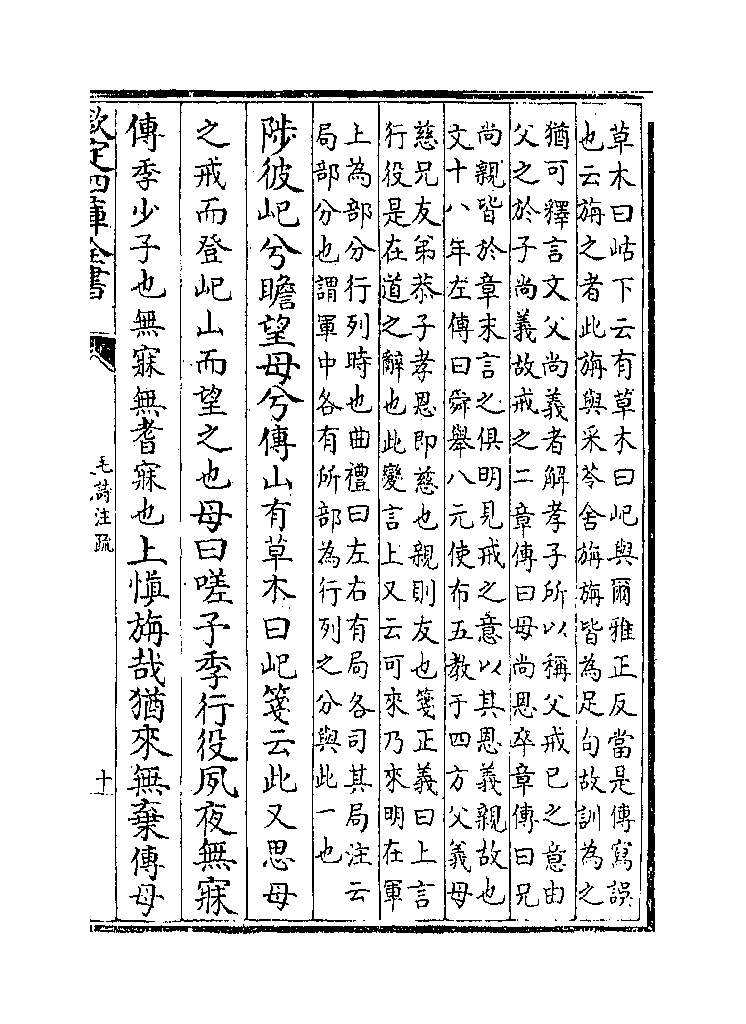 草木曰岵下云有草木曰屺與爾雅正反當是傳寫誤
也云旃之者此旃與采苓舍旃旃皆為足句故訓為之
猶可釋言文父尚義者解孝子所以稱父戒已之意由
父之於子尚義故戒之二章傳曰母尚恩卒章傳曰兄
尚親皆於章末言之俱明見戒之意以其恩義親故也
文十八年左傳曰舜舉八元使布五教于四方父義母
慈兄友弟恭子孝恩即慈也親則友也箋正義曰上言
行役是在道之辭也此變言上又云可來乃來明在軍
上為部分行列時也曲禮曰左右有局各司其局注云
局部分也謂軍中各有所部為行列之分與此一也
陟彼屺兮瞻望母兮傳山有草木曰屺箋云此又思母
之戒而登屺山而望之也母曰嗟予季行役夙夜無寐
傳季少子也無寐無耆寐也上慎旃哉猶來無棄傳母
欽定四庫全書
毛詩注疏
十